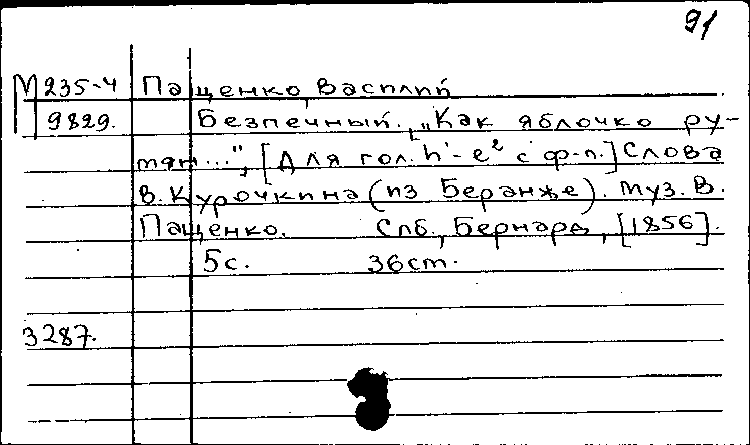 91
М 235-4 Пащенко, Василий
9829. Безпечный. „Как яблочко ру-
мян...", [Для гол. h'-e² с ф-п.] Слова
В. Курочкина (из Беранже). Муз. В.
Пащенко. Спб., Бернард, [1856].
5с. 36см.
3287.